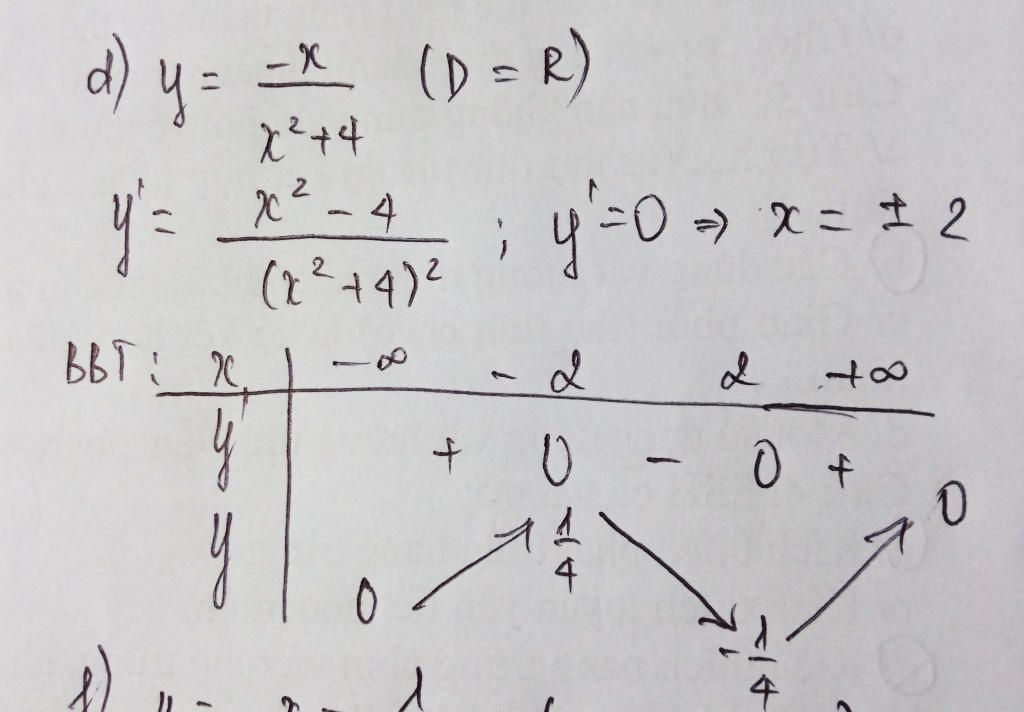 d) y = -x / (x² + 4) (D = R)
y' = (x² - 4) / (x² + 4)² ; y' = 0 ⇒ x = ± 2
BBT: x | -∞ -2 2 +∞
y' | + 0 - 0 +
y | 0 ↗ 1/4 ↘ -1/4 ↗ 0
f) y =